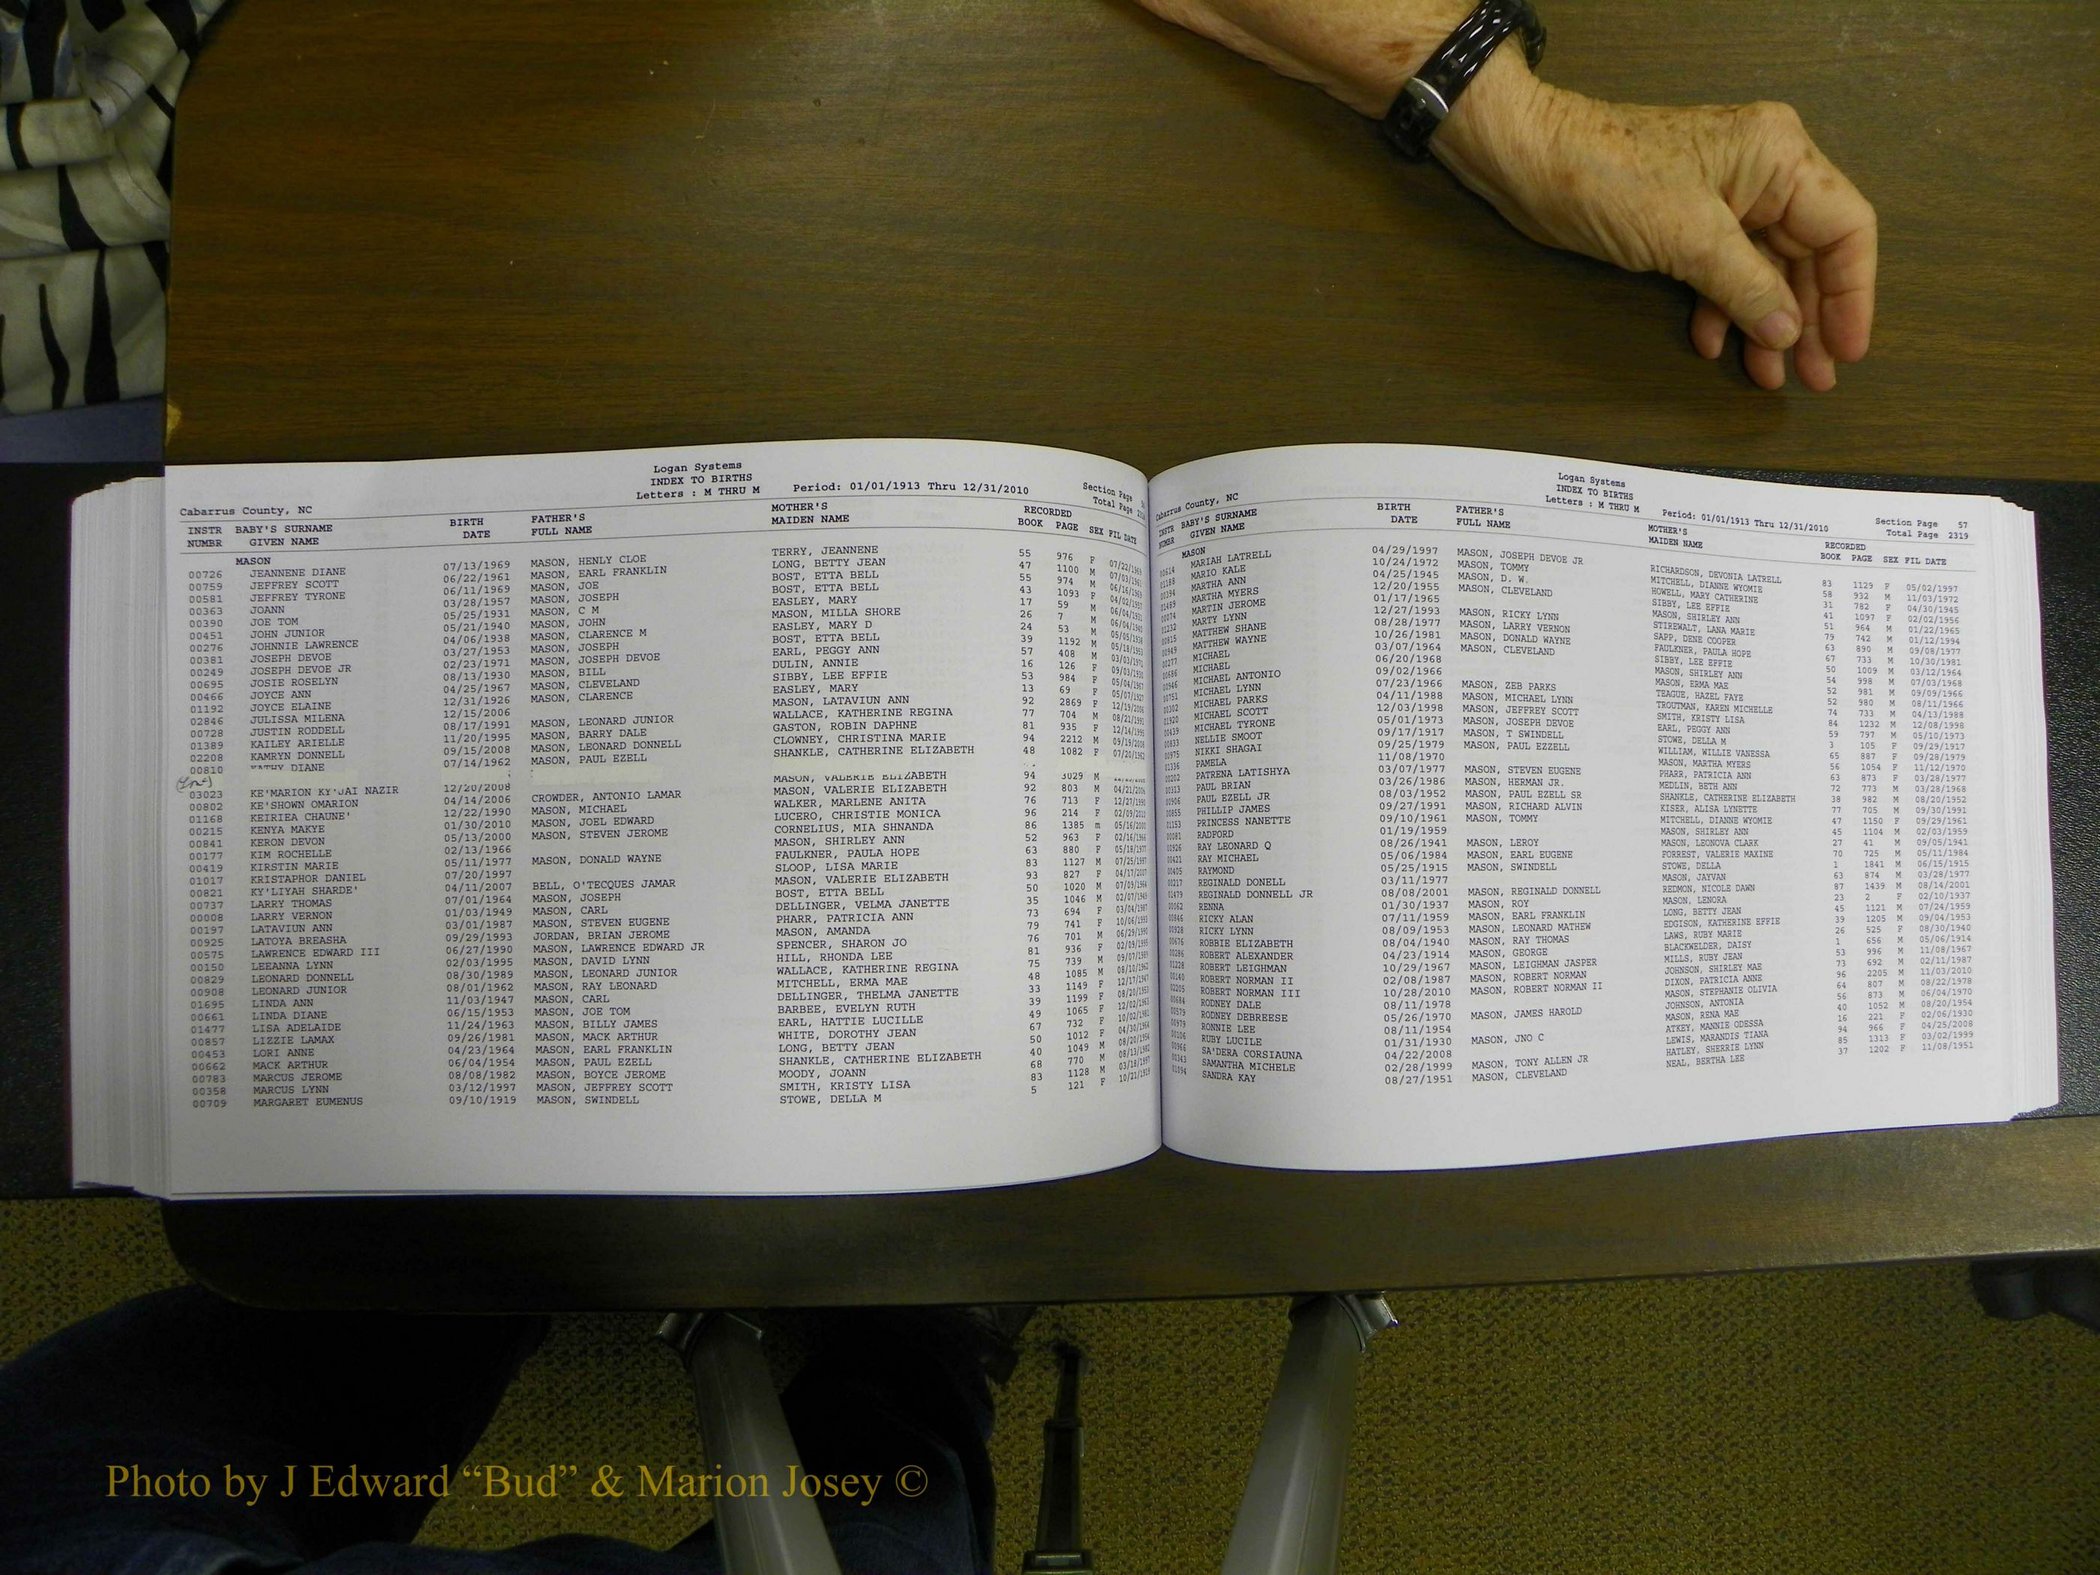 Logan Systems
INDEX TO BIRTHS
Letters : M THRU M Period: 01/01/1913 Thru 12/31/2010
Section Page
Total Page
Cabarrus County, NC
INSTR BABY'S SURNAME BIRTH FATHER'S MOTHER'S RECORDED
NUMBR GIVEN NAME DATE FULL NAME MAIDEN NAME BOOK PAGE SEX FIL DATE
MASON
00726 JEANNENE DIANE 07/13/1969 MASON, HENLY CLOE TERRY, JEANNENE 55 976 F 07/22/1969
00759 JEFFREY SCOTT 06/22/1961 MASON, EARL FRANKLIN LONG, BETTY JEAN 47 1100 M 07/03/1961
00581 JEFFREY TYRONE 06/11/1969 MASON, JOE BOST, ETTA BELL 55 974 M 06/16/1969
00363 JOANN 03/28/1957 MASON, JOSEPH BOST, ETTA BELL 43 1093 F 04/02/1957
00390 JOE TOM 05/25/1931 MASON, C M EASLEY, MARY 17 59 M 06/04/1931
00451 JOHN JUNIOR 05/21/1940 MASON, JOHN MASON, MILLA SHORE 26 7 M 06/04/1940
00276 JOHNNIE LAWRENCE 04/06/1938 MASON, CLARENCE M EASLEY, MARY D 24 53 M 05/05/1938
00381 JOSEPH DEVOE 03/27/1953 MASON, JOSEPH BOST, ETTA BELL 39 1192 M 05/18/1953
00249 JOSEPH DEVOE JR 02/23/1971 MASON, JOSEPH DEVOE EARL, PEGGY ANN 57 408 M 03/03/1971
00695 JOSIE ROSELYN 08/13/1930 MASON, BILL DULIN, ANNIE 16 126 F 09/03/1930
00466 JOYCE ANN 04/25/1967 MASON, CLEVELAND SIBBY, LEE EFFIE 53 984 F 05/04/1967
01192 JOYCE ELAINE 12/31/1926 MASON, CLARENCE EASLEY, MARY 13 69 F 05/07/1927
02846 JULISSA MILENA 12/15/2006 MASON, LATAVIUN ANN 92 2869 F 12/19/2006
00728 JUSTIN RODDELL 08/17/1991 MASON, LEONARD JUNIOR WALLACE, KATHERINE REGINA 77 704 M 08/21/1991
01389 KAILEY ARIELLE 11/20/1995 MASON, BARRY DALE GASTON, ROBIN DAPHNE 81 935 F 12/14/1995
02208 KAMRYN DONNELL 09/15/2008 MASON, LEONARD DONNELL CLOWNEY, CHRISTINA MARIE 94 2212 M 09/19/2008
00810 KATHY DIANE 07/14/1962 MASON, PAUL EZELL SHANKLE, CATHERINE ELIZABETH 48 1082 F 07/20/1962
03023 KE'MARION KY'JAI NAZIR 12/20/2008 MASON, VALERIE ELIZABETH 94 3029 M
00802 KE'SHOWN OMARION 04/14/2006 CROWDER, ANTONIO LAMAR MASON, VALERIE ELIZABETH 92 803 M 04/21/2006
01168 KEIRIEA CHAUNE' 12/22/1990 MASON, MICHAEL WALKER, MARLENE ANITA 76 713 F 12/27/1990
00215 KENYA MAKYE 01/30/2010 MASON, JOEL EDWARD LUCERO, CHRISTIE MONICA 96 214 F 02/09/2010
00841 KERON DEVON 05/13/2000 MASON, STEVEN JEROME CORNELIUS, MIA SHNANDA 86 1385 m 05/16/2000
00177 KIM ROCHELLE 02/13/1966 MASON, SHIRLEY ANN 52 963 F 02/16/1966
00419 KIRSTIN MARIE 05/11/1977 MASON, DONALD WAYNE FAULKNER, PAULA HOPE 63 880 F 05/18/1977
01017 KRISTAPHOR DANIEL 07/20/1997 SLOOP, LISA MARIE 83 1127 M 07/25/1997
00821 KY'LIYAH SHARDE' 04/11/2007 BELL, O'TECQUES JAMAR MASON, VALERIE ELIZABETH 93 827 F 04/17/2007
00737 LARRY THOMAS 07/01/1964 MASON, JOSEPH BOST, ETTA BELL 50 1020 M 07/09/1964
00008 LARRY VERNON 01/03/1949 MASON, CARL DELLINGER, VELMA JANETTE 35 1046 M 02/07/1949
00197 LATAVIUN ANN 03/01/1987 MASON, STEVEN EUGENE PHARR, PATRICIA ANN 73 694 F 03/04/1987
00925 LATOYA BREASHA 09/29/1993 JORDAN, BRIAN JEROME MASON, AMANDA 79 741 F 10/06/1993
00575 LAWRENCE EDWARD III 06/27/1990 MASON, LAWRENCE EDWARD JR SPENCER, SHARON JO 76 701 M 06/29/1990
00150 LEEANNA LYNN 02/03/1995 MASON, DAVID LYNN HILL, RHONDA LEE 81 936 F 02/09/1995
00829 LEONARD DONNELL 08/30/1989 MASON, LEONARD JUNIOR WALLACE, KATHERINE REGINA 75 739 M 09/07/1989
00908 LEONARD JUNIOR 08/01/1962 MASON, RAY LEONARD MITCHELL, ERMA MAE 48 1085 M 08/10/1962
01695 LINDA ANN 11/03/1947 MASON, CARL DELLINGER, THELMA JANETTE 33 1149 F 12/17/1947
00661 LINDA DIANE 06/15/1953 MASON, JOE TOM BARBEE, EVELYN RUTH 39 1199 F 08/20/1953
01477 LISA ADELAIDE 11/24/1963 MASON, BILLY JAMES EARL, HATTIE LUCILLE 49 1065 F 12/02/1963
00857 LIZZIE LAMAX 09/26/1981 MASON, MACK ARTHUR WHITE, DOROTHY JEAN 67 732 F 10/02/1981
00453 LORI ANNE 04/23/1964 MASON, EARL FRANKLIN LONG, BETTY JEAN 50 1012 F 04/30/1964
00662 MACK ARTHUR 06/04/1954 MASON, PAUL EZELL SHANKLE, CATHERINE ELIZABETH 40 1049 M 08/20/1954
00783 MARCUS JEROME 08/08/1982 MASON, BOYCE JEROME MOODY, JOANN 68 770 M 08/13/1982
00358 MARCUS LYNN 03/12/1997 MASON, JEFFREY SCOTT SMITH, KRISTY LISA 83 1128 M 03/18/1997
00709 MARGARET EUMENUS 09/10/1919 MASON, SWINDELL STOWE, DELLA M 5 121 F 10/21/1919
Logan Systems
INDEX TO BIRTHS
Letters : M THRU M Period: 01/01/1913 Thru 12/31/2010
Section Page 57
Total Page 2319
Cabarrus County, NC
INSTR BABY'S SURNAME BIRTH FATHER'S MOTHER'S RECORDED
NUMBR GIVEN NAME DATE FULL NAME MAIDEN NAME BOOK PAGE SEX FIL DATE
MASON
00614 MARIAH LATRELL 04/29/1997 MASON, JOSEPH DEVOE JR RICHARDSON, DEVONIA LATRELL 83 1129 F 05/02/1997
01188 MARIO KALE 10/24/1972 MASON, TOMMY MITCHELL, DIANNE WYOMIE 58 932 M 11/03/1972
00394 MARTHA ANN 04/25/1945 MASON, D. W. HOWELL, MARY CATHERINE 31 782 F 04/30/1945
01489 MARTHA MYERS 12/20/1955 MASON, CLEVELAND SIBBY, LEE EFFIE 41 1097 F 02/02/1956
00074 MARTIN JEROME 01/17/1965 MASON, SHIRLEY ANN 51 964 M 01/22/1965
01232 MARTY LYNN 12/27/1993 MASON, RICKY LYNN STIREWALT, LANA MARIE 79 742 M 01/12/1994
00815 MATTHEW SHANE 08/28/1977 MASON, LARRY VERNON SAPP, DENE COOPER 63 890 M 09/08/1977
00949 MATTHEW WAYNE 10/26/1981 MASON, DONALD WAYNE FAULKNER, PAULA HOPE 67 733 M 10/30/1981
00277 MICHAEL 03/07/1964 MASON, CLEVELAND SIBBY, LEE EFFIE 50 1009 M 03/12/1964
00686 MICHAEL 06/20/1968 MASON, SHIRLEY ANN 54 998 M 07/03/1968
00946 MICHAEL ANTONIO 09/02/1966 MASON, ERMA MAE 52 981 M 09/09/1966
00751 MICHAEL LYNN 07/23/1966 MASON, ZEB PARKS TEAGUE, HAZEL FAYE 52 980 M 08/11/1966
00302 MICHAEL PARKS 04/11/1988 MASON, MICHAEL LYNN TROUTMAN, KAREN MICHELLE 74 733 M 04/13/1988
01920 MICHAEL SCOTT 12/03/1998 MASON, JEFFREY SCOTT SMITH, KRISTY LISA 84 1232 M 12/08/1998
00439 MICHAEL TYRONE 05/01/1973 MASON, JOSEPH DEVOE EARL, PEGGY ANN 59 797 M 05/10/1973
00833 NELLIE SMOOT 09/17/1917 MASON, T SWINDELL STOWE, DELLA M 3 105 F 09/29/1917
00975 NIKKI SHAGAI 09/25/1979 MASON, PAUL EZZELL WILLIAM, WILLIE VANESSA 65 887 F 09/28/1979
01336 PAMELA 11/08/1970 MASON, MARTHA MYERS 56 1054 F 11/12/1970
00202 PATRENA LATISHYA 03/07/1977 MASON, STEVEN EUGENE PHARR, PATRICIA ANN 63 873 F 03/28/1977
00313 PAUL BRIAN 03/26/1986 MASON, HERMAN JR. MEDLIN, BETH ANN 72 773 M 03/28/1968
00906 PAUL EZELL JR 08/03/1952 MASON, PAUL EZELL SR SHANKLE, CATHERINE ELIZABETH 38 982 M 08/20/1952
00855 PHILLIP JAMES 09/27/1991 MASON, RICHARD ALVIN KISER, ALISA LYNETTE 77 705 M 09/30/1991
01153 PRINCESS NANETTE 09/10/1961 MASON, TOMMY MITCHELL, DIANNE WYOMIE 47 1150 F 09/29/1961
00081 RADFORD 01/19/1959 MASON, SHIRLEY ANN 45 1104 M 02/03/1959
00926 RAY LEONARD Q 08/26/1941 MASON, LEROY MASON, LEONOVA CLARK 27 41 M 09/05/1941
00421 RAY MICHAEL 05/06/1984 MASON, EARL EUGENE FORREST, VALERIE MAXINE 70 725 M 05/11/1984
00405 RAYMOND 05/25/1915 MASON, SWINDELL STOWE, DELLA 1 1841 M 06/15/1915
00217 REGINALD DONELL 03/11/1977 MASON, JAYVAN 63 874 M 03/28/1977
01479 REGINALD DONNELL JR 08/08/2001 MASON, REGINALD DONNELL REDMON, NICOLE DAWN 87 1439 M 08/14/2001
00062 RENNA 01/30/1937 MASON, ROY MASON, LENORA 23 2 F 02/10/1937
00846 RICKY ALAN 07/11/1959 MASON, EARL FRANKLIN LONG, BETTY JEAN 45 1121 M 07/24/1959
00928 RICKY LYNN 08/09/1953 MASON, LEONARD MATHEW EDGISON, KATHERINE EFFIE 39 1205 M 09/04/1953
00676 ROBBIE ELIZABETH 08/04/1940 MASON, RAY THOMAS LAWS, RUBY MARIE 26 525 F 08/30/1940
00286 ROBERT ALEXANDER 04/23/1914 MASON, GEORGE BLACKWELDER, DAISY 1 656 M 05/06/1914
01228 ROBERT LEIGHMAN 10/29/1967 MASON, LEIGHMAN JASPER MILLS, RUBY JEAN 53 996 M 11/08/1967
00140 ROBERT NORMAN II 02/08/1987 MASON, ROBERT NORMAN JOHNSON, SHIRLEY MAE 73 692 M 02/11/1987
02205 ROBERT NORMAN III 10/28/2010 MASON, ROBERT NORMAN II DIXON, PATRICIA ANNE 96 2205 M 11/03/2010
00684 RODNEY DALE 08/11/1978 MASON, STEPHANIE OLIVIA 64 807 M 08/22/1978
00579 RODNEY DEBREESE 05/26/1970 MASON, JAMES HAROLD JOHNSON, ANTONIA 56 873 M 06/04/1970
00579 RONNIE LEE 08/11/1954 MASON, RENA MAE 40 1052 M 08/20/1954
00106 RUBY LUCILE 01/31/1930 MASON, JNO C ATKEY, MANNIE ODESSA 16 221 F 02/06/1930
00966 SA'DERA CORSIAUNA 04/22/2008 LEWIS, MARANDIS TIANA 94 966 F 04/25/2008
00343 SAMANTHA MICHELE 02/28/1999 MASON, TONY ALLEN JR HATLEY, SHERRIE LYNN 85 1313 F 03/02/1999
01094 SANDRA KAY 08/27/1951 MASON, CLEVELAND NEAL, BERTHA LEE 37 1202 F 11/08/1951
Photo by J Edward “Bud” & Marion Josey ©